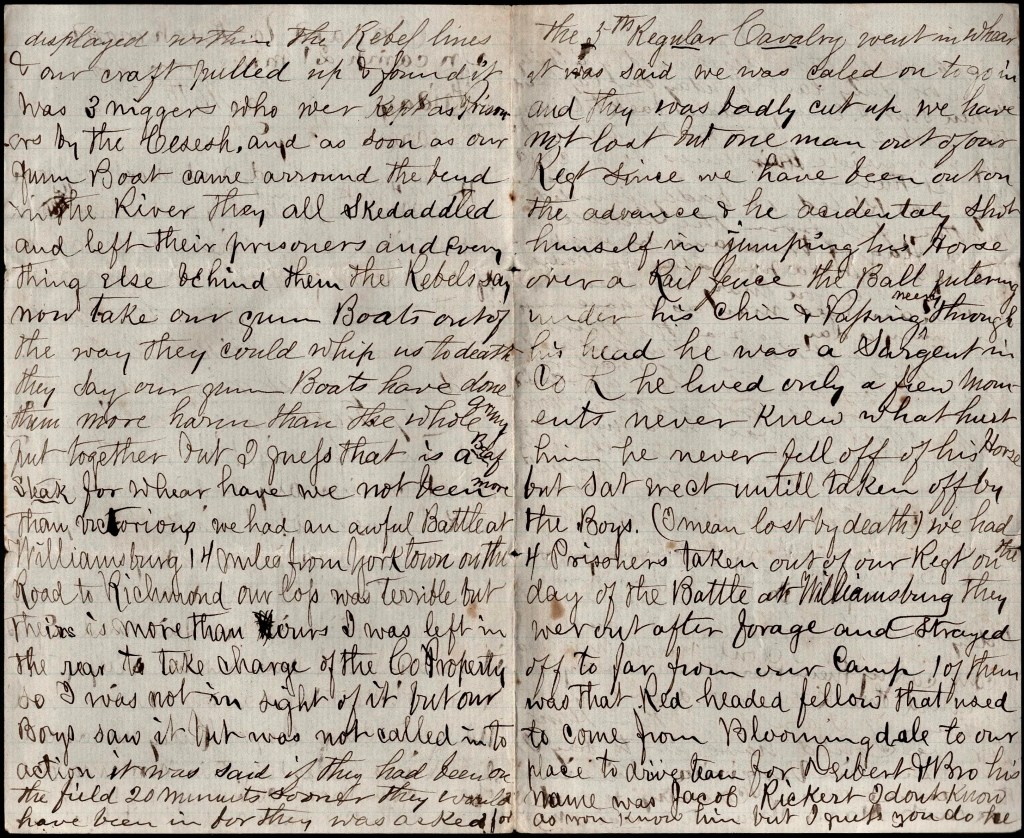 displayed within the Rebel lines
& our craft pulled up & found it
was 3 niggers who wer Kept as Prison
ers by the Cesesh, and as soon as our
Gunn Boat came arround the bend
in the River they all Skedaddled
and left their prisoners and Every
thing Else behind them the Rebels say
now take our gunn Boats out of
the way they could whip us to death
they say our gunn Boats have done
them more harm than the whole army
put together but I guess that is a Beef
Steak for whear have we not been more
than victorious we had an awful Battle at
Williamsburg 14 miles from Yorktown on the
Road to Richmond our Loss was terrible but
theirs is more than ours I was left in
the rear to take charge of the Co Property
so I was not in sight of it but our
Boys saw it but was not called in to
action it was said if they had been on
the field 20 minuits sooner they would
have been in for they was asked for
the 5th Regular Cavalry went in whear
it was said we was caled on to go in
and they was badly cut up we have
not lost but one man out of our
Regt since we have been out on
the advance & he acidentaly shot
himself in jumping his Horse
over a Rail fence the Ball entering
under his Chin & Passing nearly through
his head he was a Sargent in
Co L he lived only a few mom
ents never knew what hurt
him he never fell off of his Horse
but sat erect untill taken off by
the Boys. (I mean lost by death) we had
4 Prisoners taken out of our Regt on the
day of the Battle at Williamsburg they
wer out after forage and strayed
off to far from our Camp 1 of them
was that Red headed fellow that used
to come from Bloomingdale to our
place to drive team for Deibert & Bro his
name was Jacob Rickert I dont know
as you know him but I guess you do he